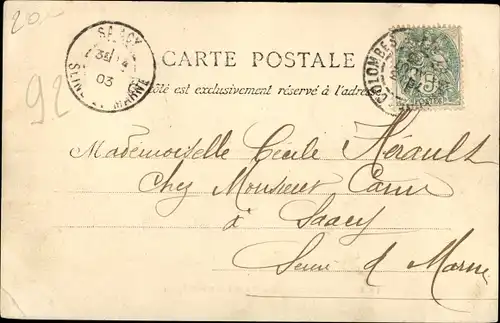 20
92
SAACY
3
03
SEINE ET MARNE
CARTE POSTALE
côté est exclusivement réservé à l'adresse
COLOMBES
5
Mademoiselle Cécile Hérault
Chez Monsieur
à Saacy
Seine & Marne